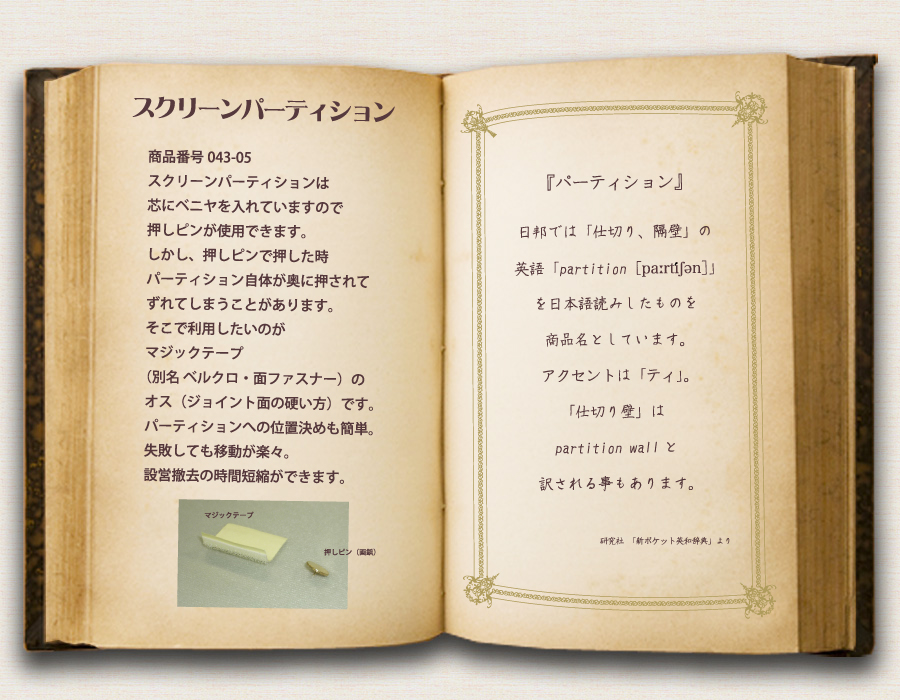 スクリーンパーティション
商品番号 043-05
スクリーンパーティションは
芯にベニヤを入れていますので
押しピンが使用できます。
しかし、押しピンで押した時
パーティション自体が奥に押されて
ずれてしまうことがあります。
そこで利用したいのが
マジックテープ
（別名 ベルクロ・面ファスナー）の
オス（ジョイント面の硬い方）です。
パーティションへの位置決めも簡単。
失敗しても移動が楽々。
設営撤去の時間短縮ができます。
マジックテープ
押しピン（画鋲）
『パーティション』
日邦では「仕切り、隔壁」の
英語「partition［pa:rtíʃən］」
を日本語読みしたものを
商品名としています。
アクセントは「ティ」。
「仕切り壁」は
partition wall と
訳される事もあります。
研究社 「新ポケット英和辞典」より